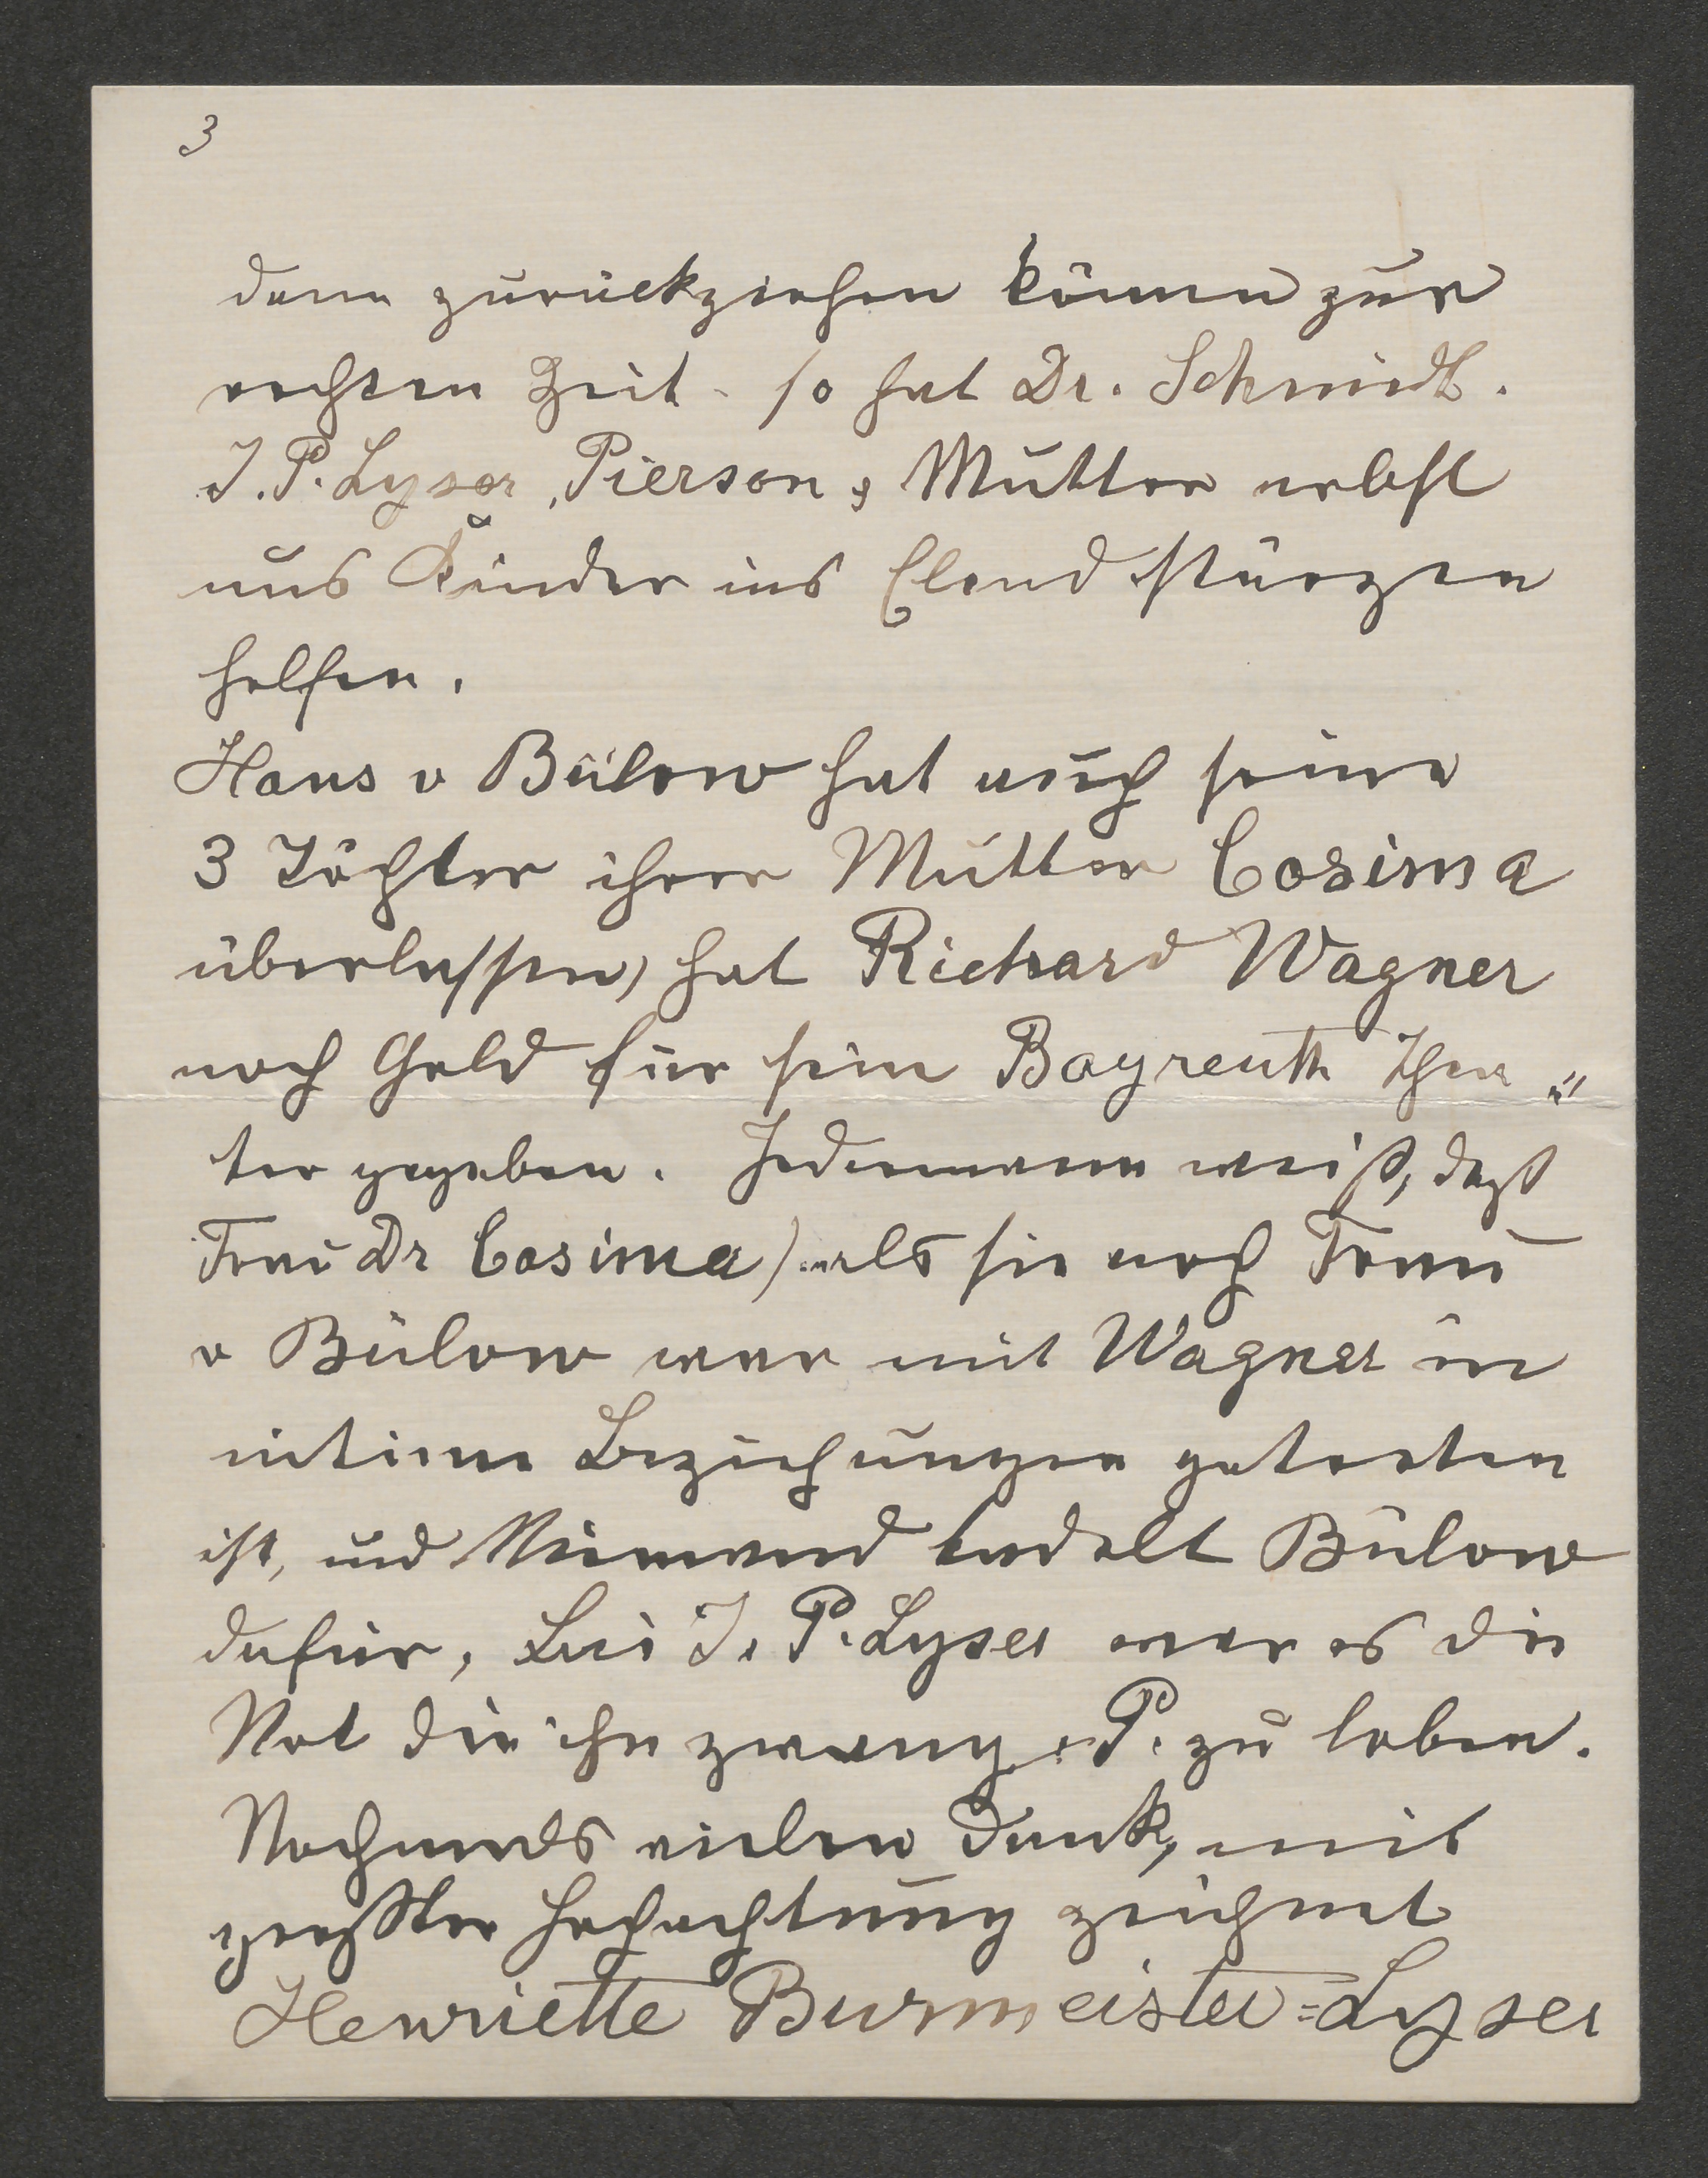 3
dann zurückziehen können zur
rechten Zeit. so hat Dr. Schmidt.
J. P. Lyser, Pierson, Mutter nebst
uns Kinder ins Elend stürzen
helfen.
Hans v Bülow hat auch seine
3 Töchter ihrer Mutter Cosima
überlassen, hat Richard Wagner
noch Geld für sein Bayreuth Thea„
ter gegeben. Jedermann weiß, daß
Frau Dr Cosima, als sie noch Frau
v Bülow war mit Wagner in
intime Beziehungen getreten
ist, und Niemand tadelt Bülow
dafür, Bei J. P. Lyser war es die
Not die ihn zwang P. zu loben.
Nochmals vielen Dank, mit
größter Hochachtung zeichnet
Henriette Burmeister=Lyser